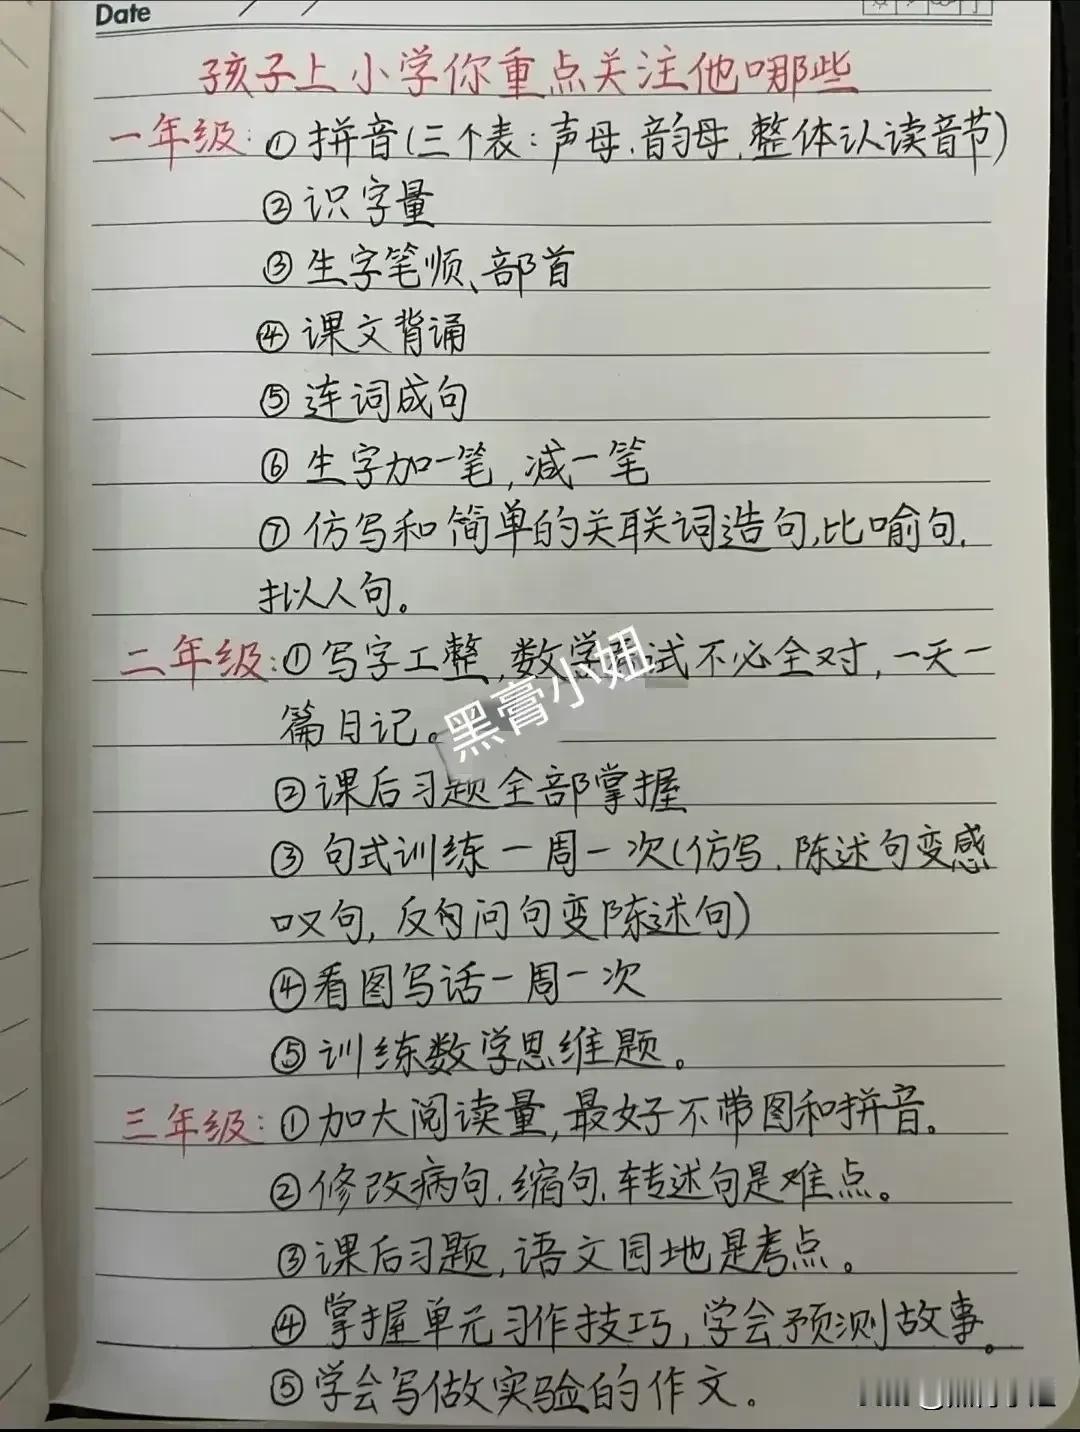 Date
孩子上小学你重点关注他哪些
一年级：①拼音(三个表：声母、韵母、整体认读音节)
②识字量
③生字笔顺、部首
④课文背诵
⑤连词成句
⑥生字加一笔，减一笔
⑦仿写和简单的关联词造句，比喻句，
拟人句。
二年级：①写字工整，数学考试不必全对，一天一
篇日记。
黑膏小妞
②课后习题全部掌握
③句式训练一周一次(仿写，陈述句变感
叹句，反问句变陈述句)
④看图写话一周一次
⑤训练数学思维题。
三年级：①加大阅读量，最好不带图和拼音。
②修改病句，缩句，转述句是难点。
③课后习题，语文园地是考点。
④掌握单元习作技巧，学会预测故事。
⑤学会写做实验的作文。